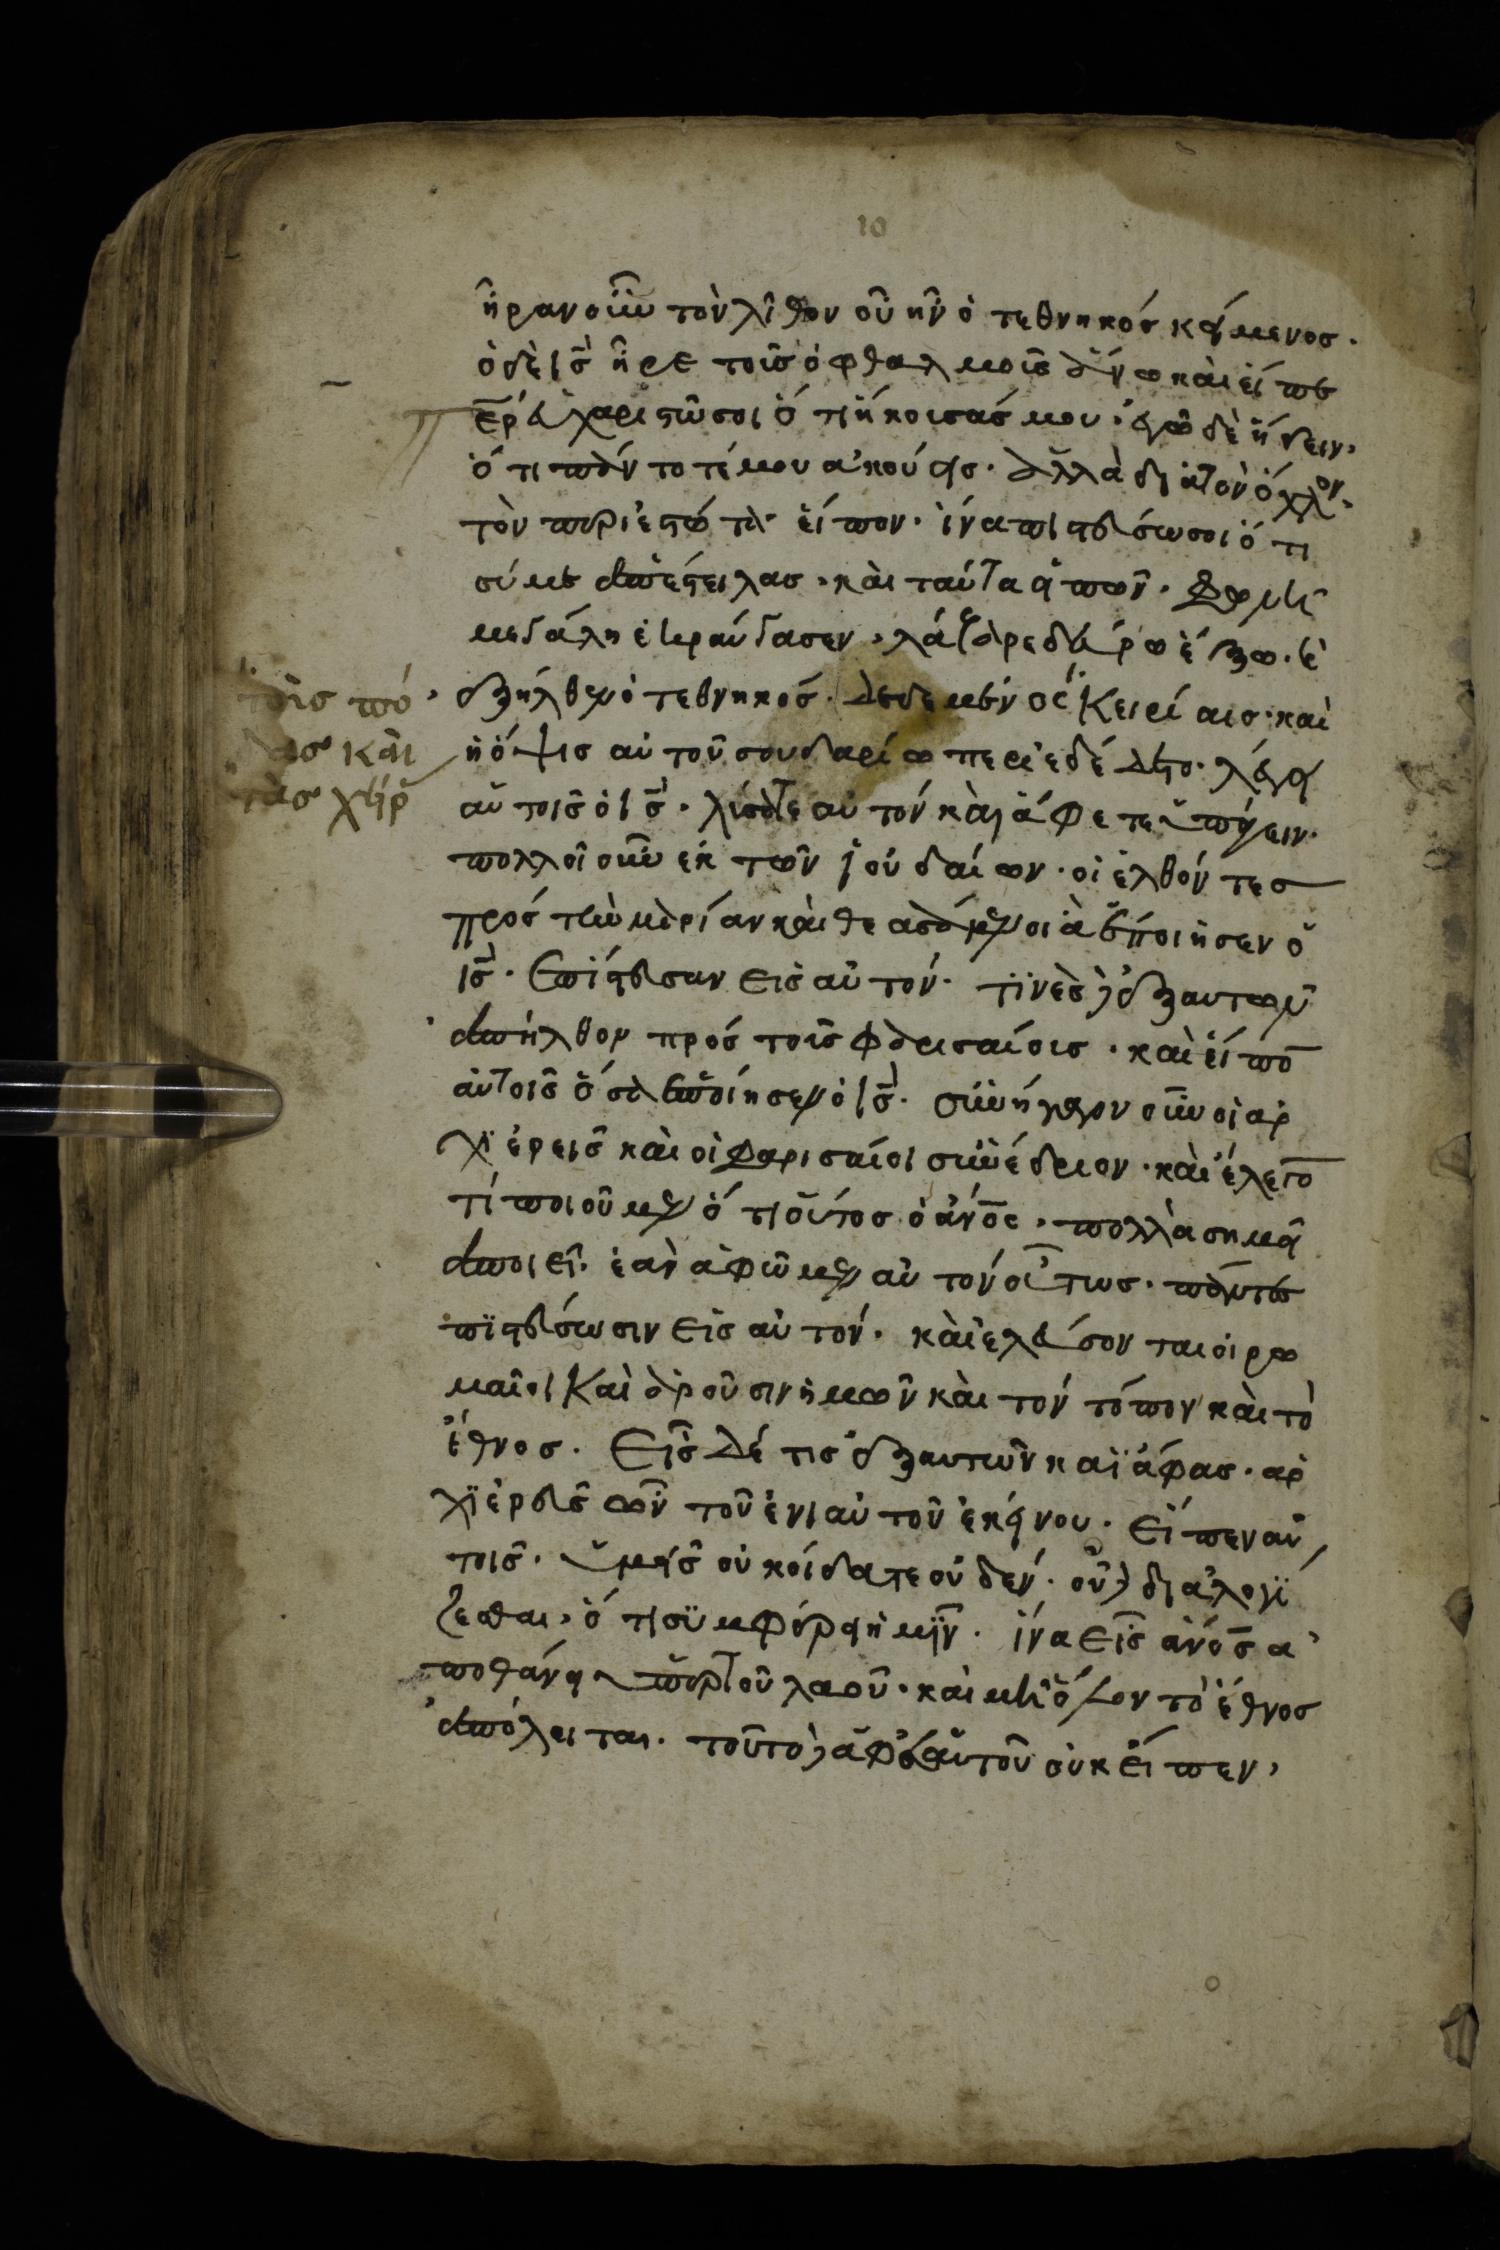 10
ἦραν οὖν τὸν λίθον οὗ ἦν ὁ τεθνηκός κείμενος·
ὁ δὲ ι̅ς̅ ἦρε τοὺς ὀφθαλμοὺς ἄνω καὶ εἶπε
π̅ε̅ρ εὐχαριστῶ σοι ὅτι ἤκουσάς μου· ἐγὼ δὲ ἤδειν,
ὅτι πάντοτέ μου ἀκούεις· ἀλλὰ διὰ τὸν ὄχλον
τὸν περιεστῶτα εἶπον· ἵνα πιστεύσωσοι ὅτι
σύ με ἀπέστειλας· καὶ ταῦτα εἰπὼν· φωνῆ
μεγάλη ἐκραύγασεν, λάζαρε δεύρω ἔξω· ἐ
ξῆλθεν ὁ τεθνηκός· δεδεμένος κειρίαις· καὶ
τοὺς πό
δας καὶ
τὰς χεῖρ
ἡ ὄψις αὐτοῦ σουδαρίω περιεδέδετο· λέγει
αὐτοῖς ὁ ι̅ς̅· λύσατε αὐτόν καὶ ἄφετε ὑπάγειν·
πολλοὶ οὖν ἐκ τῶν ἰουδαίων· οἱ ἐλθόντες
πρός τὴν μαρίαν καὶ θεασάμενοι ἃ ἐποίησεν ὁ
ι̅ς̅· ἐπίστευσαν εἰς αὐτόν· τινὲς δὲ ἐξ αυτῶν
ἀπῆλθον πρός τοὺς φαρισαίους· καὶ εἶπο̅
αὐτοῖς ὅσα ἐποίησεν ὁ ι̅ς̅· συνήγαγον οὖν οἱ ἀρ
χιέρεις καὶ οἱ φαρισαίοι συνέδριον· καὶ ἔλεγο̅
τί ποιοῦμεν ὅτι οὗτος ὁ ἄν̅ο̅ς, πολλὰ σημεῖ
α ποιεῖ· ἐὰν ἀφῶμεν αὐτόν οὕτως· πάντες
πιστεύσωσιν εἰς αὐτόν· καὶ ἐλεύσονται οἱ ρω
μαῖοι καὶ ἀροῦσιν ἡμῶν καὶ τόν τόπον καὶ τὸ
ἔθνος· Εἷς δέ τις ἐξ αυτῶν καϊάφας· ἀρ
χιέρεὺς ὢν τοῦ ἐνιαὐτοῦ ἐκείνου· εἶπεν αὐ
τοῖς· ὑμεῖς οὐκ οἴδατε οὐδέν· οὐδὲ διαλογί
ζεσθαι, ὅτι συμφέρει ἡμῖν· ἵνα εἷς ἄν̅ο̅ς ἀ
ποθάνη ὑπὲρ τοῦ λαοῦ· καὶ μὴ ὅλον τὸ ἔθνος
ἀπόλειται· τοῦτο δὲ ἀφ' ἑαυτοῦ οὐκ εἶπεν,